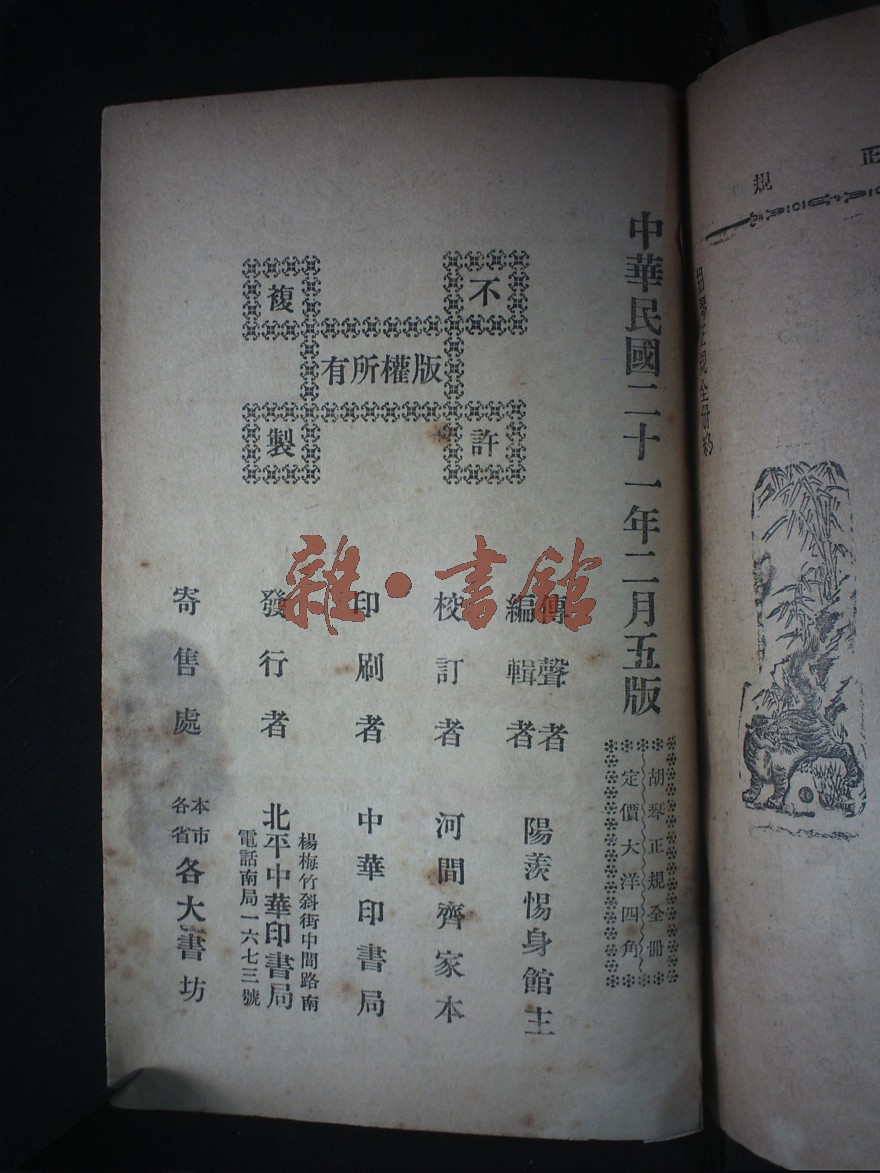 中華民國二十一年二月五版
胡琴正規全册
定價大洋四角
不許複製
版權所有
傳聲者
編輯者
陽羨惕身館主
校訂者 河間齊家本
印刷者 中華印書局
發行者
楊梅竹斜街中間路南
北平中華印書局
電話南局一六七三號
寄售處
本市
各省
各大書坊
雜·書館
正規
胡琴正規全册